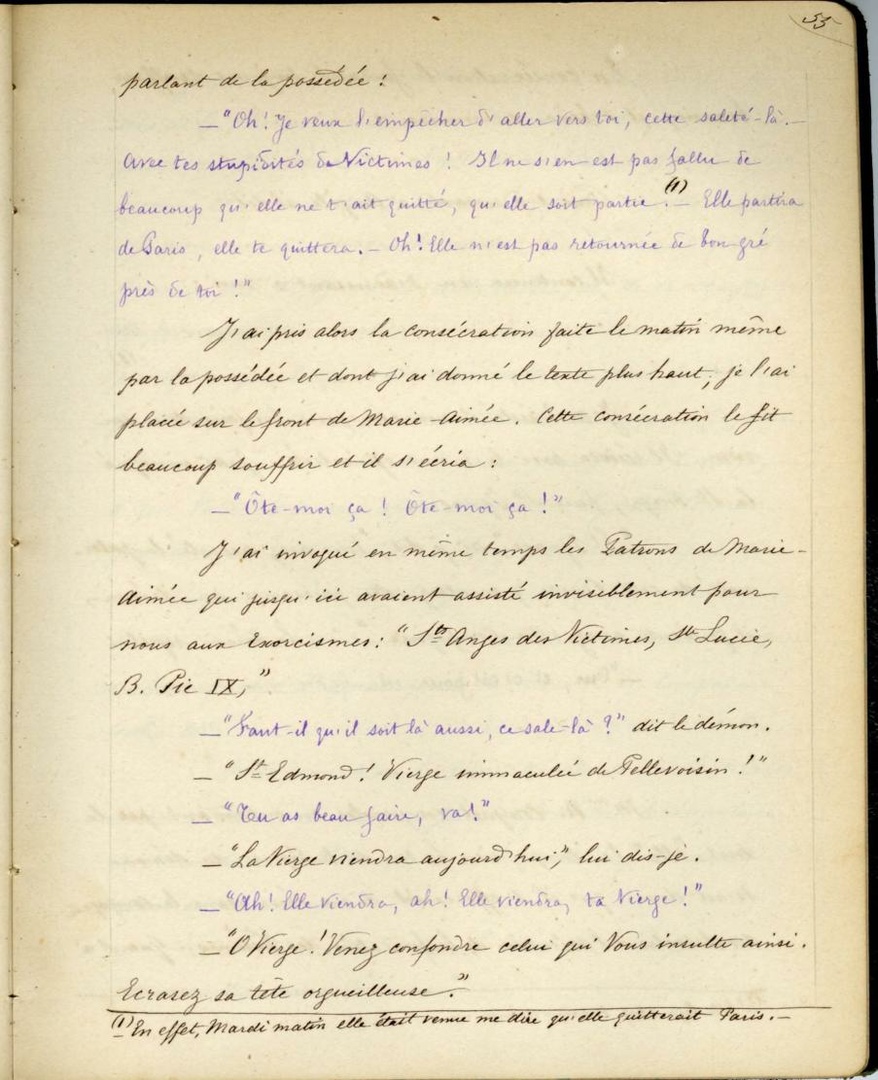 53
parlant de la possédée :
— "Oh! Je veux l'empêcher d'aller vers toi, cette saleté-là. —
Avec tes stupidités de Victimes ! Il ne s'en est pas fallu de
beaucoup qu'elle ne t'ait quitté, qu'elle soit partie. (1) — Elle partira
de Paris, elle te quittera. — Oh! Elle n'est pas retournée de bon gré
près de toi !"
J'ai pris alors la consécration faite le matin même
par la possédée et dont j'ai donné le texte plus haut; je l'ai
placée sur le front de Marie-Aimée. Cette consécration le fit
beaucoup souffrir et il s'écria :
— "Ôte-moi ça ! Ôte-moi ça !"
J'ai invoqué en même temps les Patrons de Marie-
Aimée qui jusqu'ici avaient assisté invisiblement pour
nous aux Exorcismes : "Sts Anges des Victimes, Ste Lucie,
B. Pie IX,"
— "Faut-il qu'il soit là aussi, ce sale-là ?" dit le démon.
— "St Edmond ! Vierge immaculée de Pellevoisin !"
— "Tu as beau faire, va !"
— "La Vierge viendra aujourd'hui," lui dis-je.
— "Ah! Elle viendra, ah! Elle viendra, ta Vierge !"
— "O Vierge ! Venez confondre celui qui Vous insulte ainsi.
Ecrasez sa tête orgueilleuse."
(1) En effet, Mardi matin elle était venue me dire qu'elle quitterait Paris. —